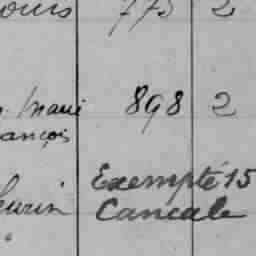 ouis 773 2
Marie 898 2
ançois
Exempté 15
Cancale